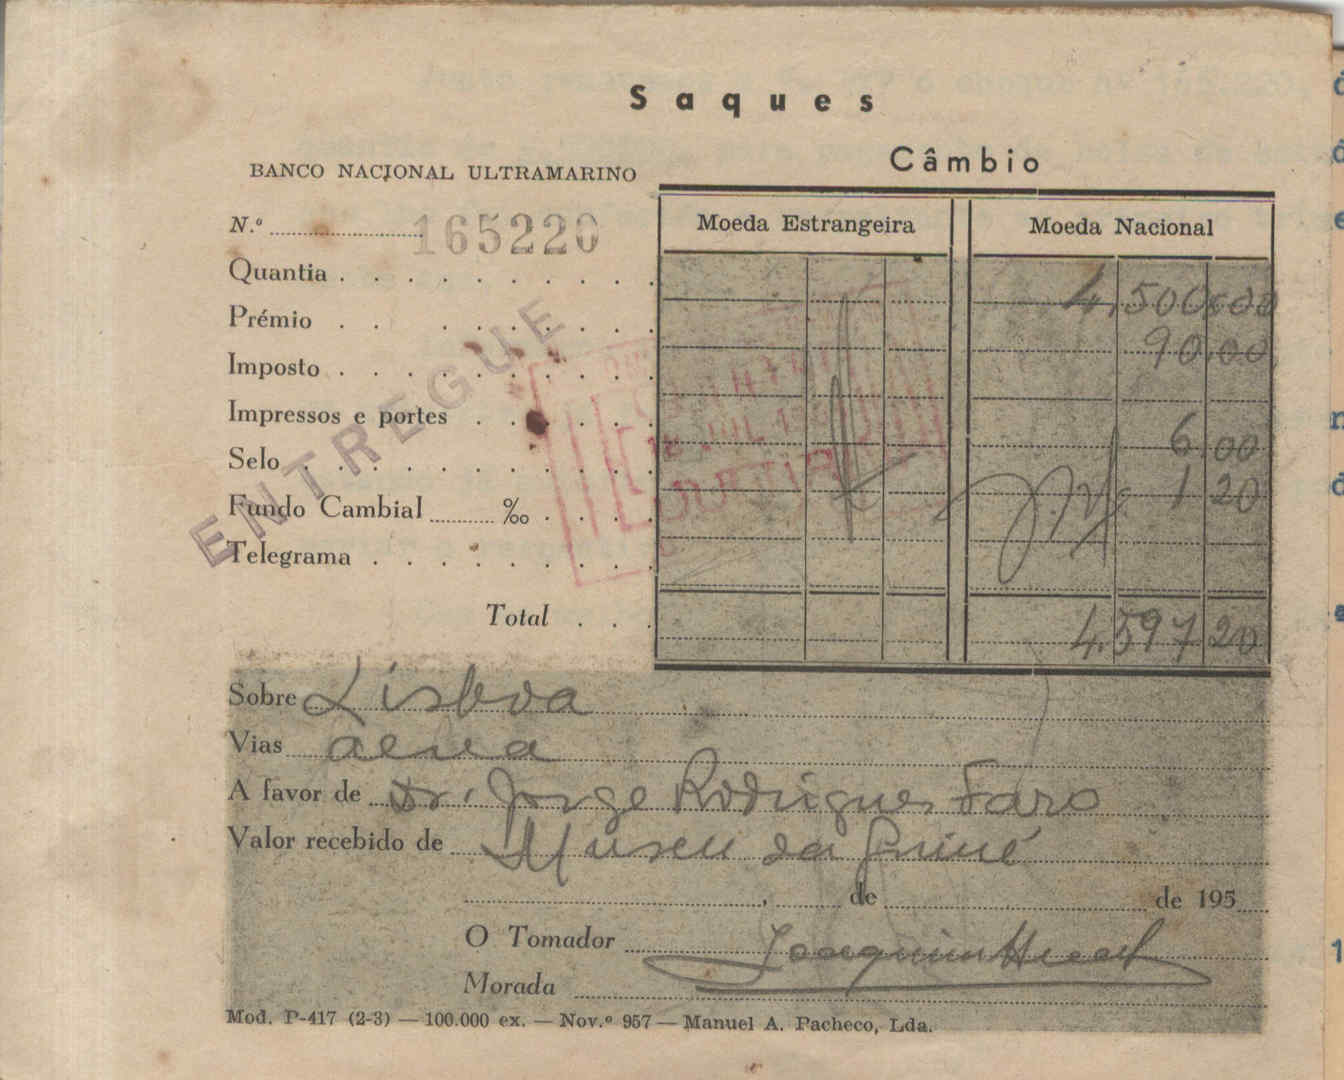 Saques
Câmbio
BANCO NACIONAL ULTRAMARINO
Moeda Estrangeira
Moeda Nacional
N.º 165220
Quantia 4.500.00
Prémio 90.00
Imposto
Impressos e portes 6.00
Selo 1 20
Fundo Cambial ‰
Telegrama
ENTREGUE
Total 4.597 20
Sobre Lisboa
Vias aerea
A favor de Dr. Jorge Rodrigues Faro
Valor recebido de Museu da Guiné
, de de 195
O Tomador Joaquim
Morada
Mod. P-417 (2-3) — 100.000 ex. — Nov.º 957 — Manuel A. Pacheco, Lda.